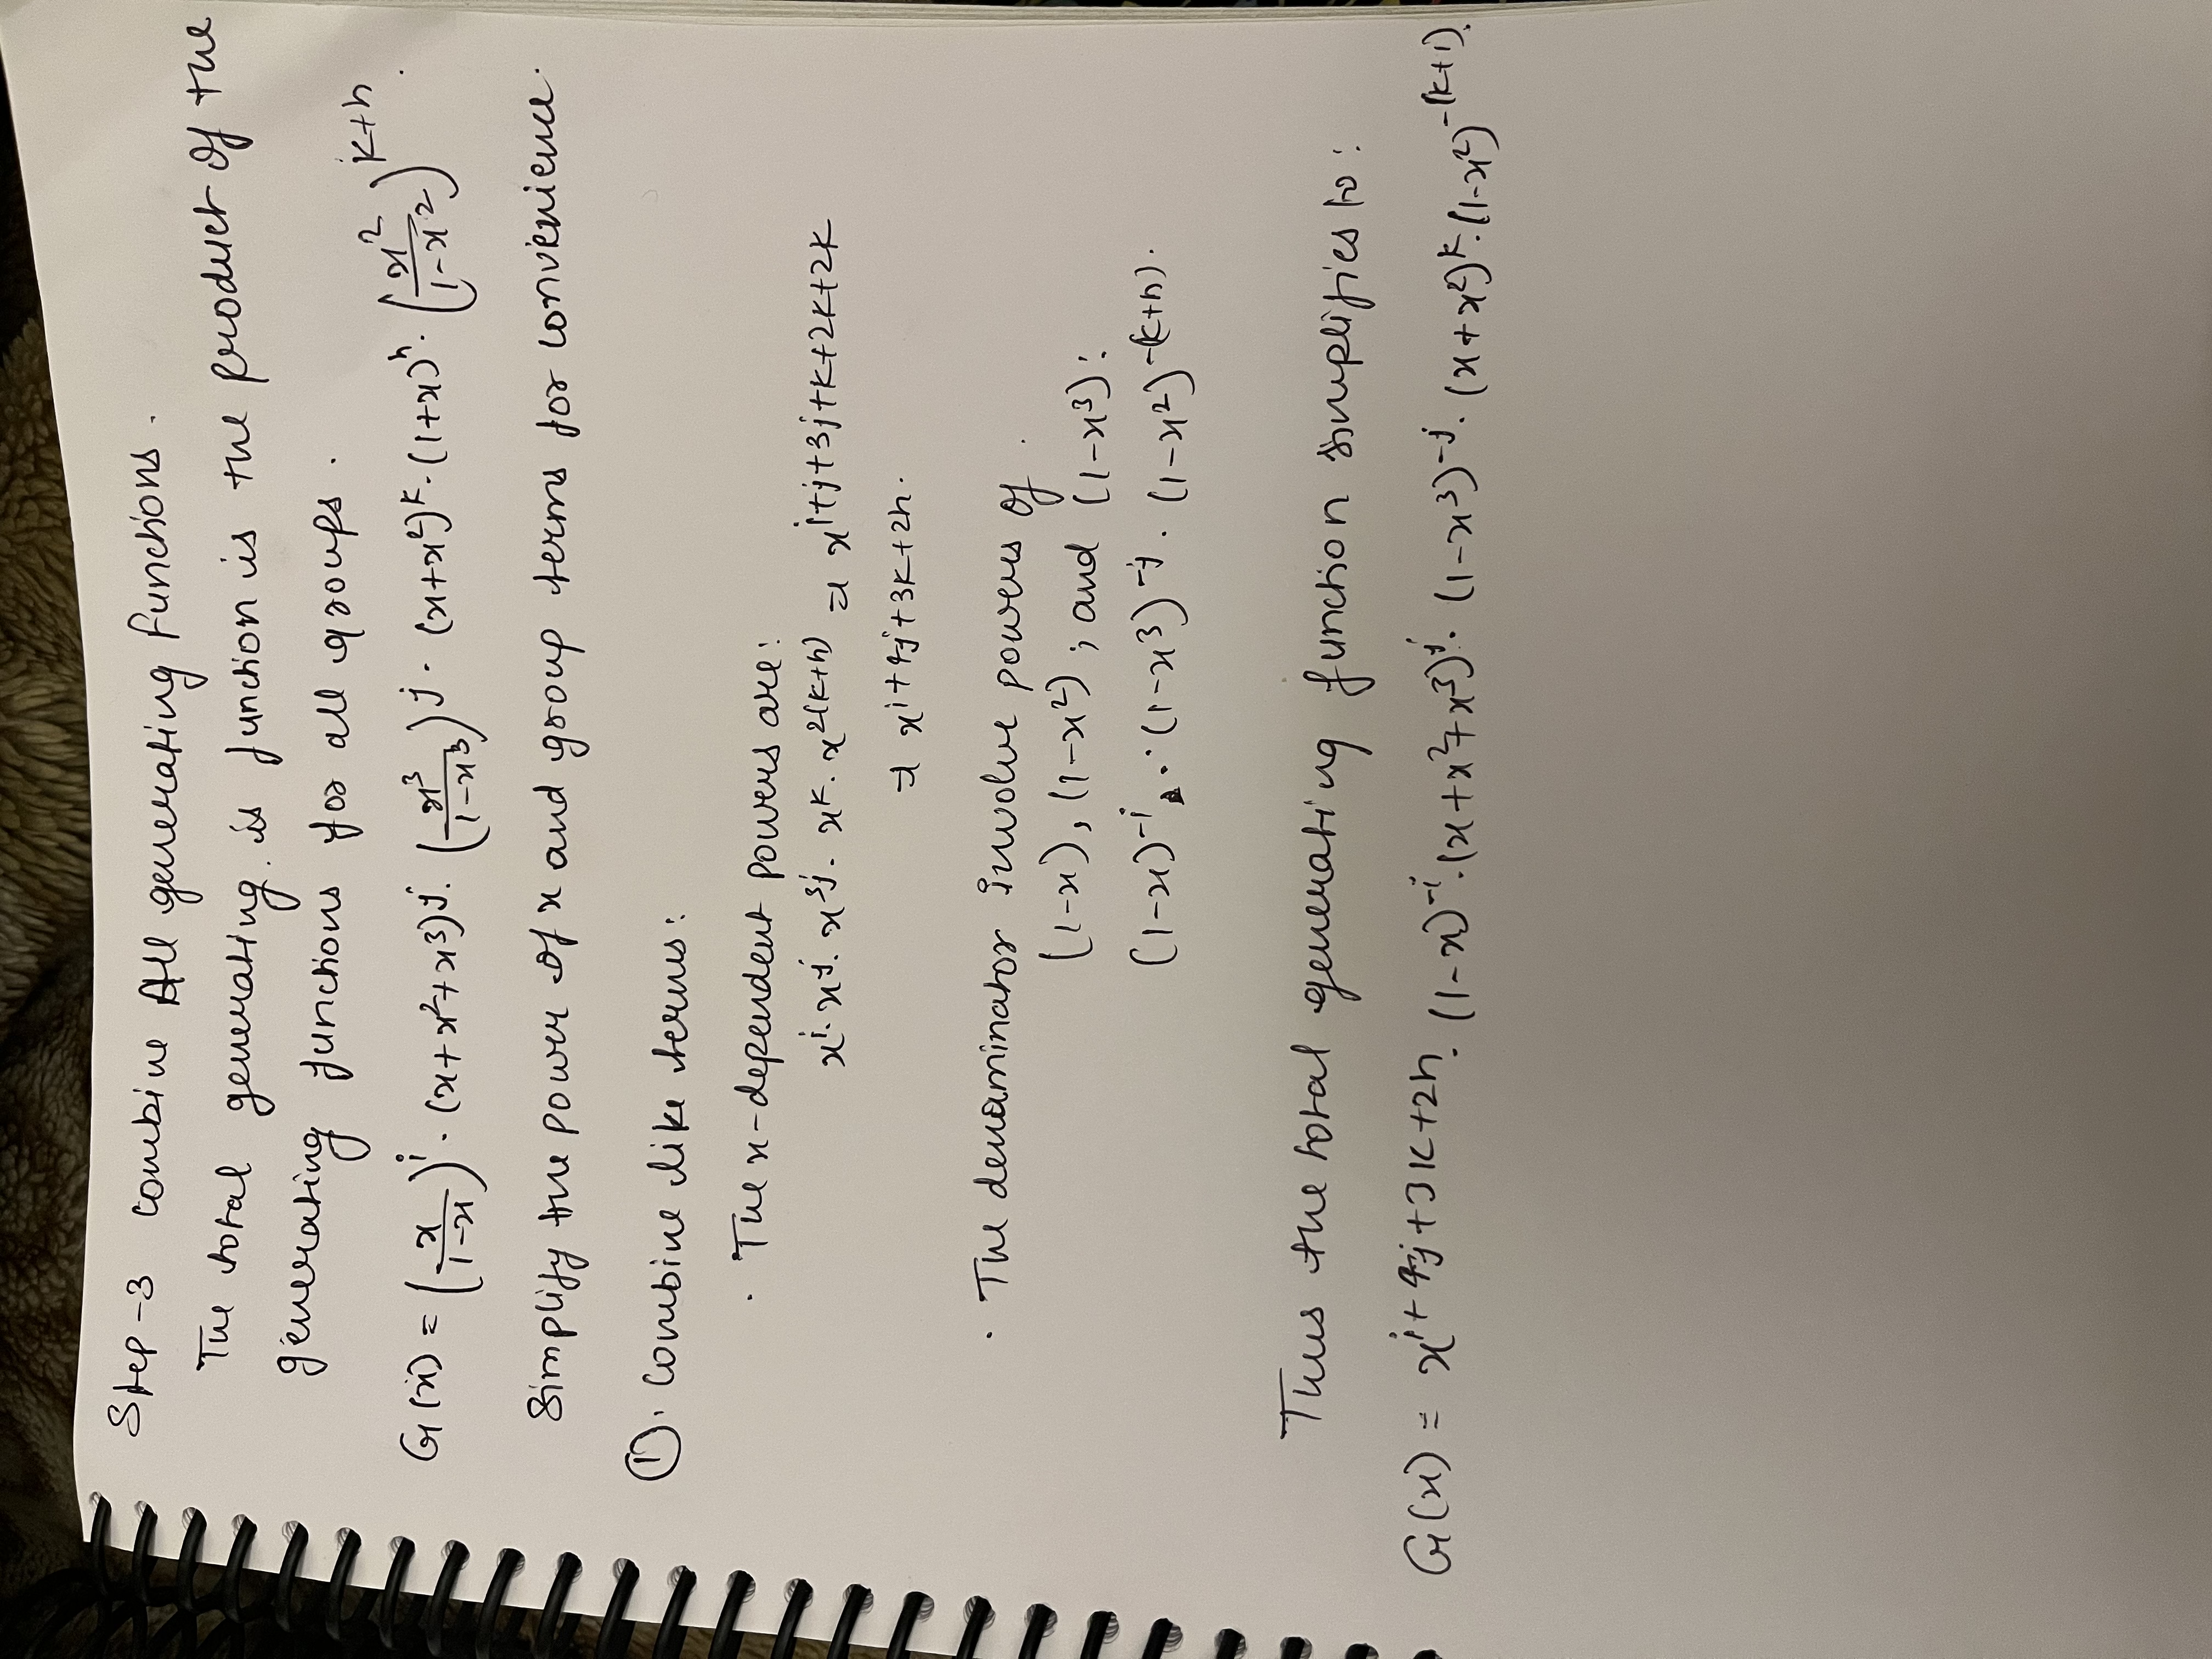 Step-3 combine All generating functions.
The total generating is function is the product of the
generating functions for all groups.
G(x) = (x/(1-x))^i · (x+x²+x³)^j · (x³/(1-x³))^j · (x+x²)^k · (1+x)^h · (x²/(1-x²))^(k+h).
Simplify the power of x and group terms for convienience.
①. Combine like terms:
· The x-dependent powers are:
x^i · x^j · x^3j · x^k · x^2(k+h) = x^(i+j+3j+k+2k+2k
= x^(i+4j+3k+2h).
· The denaminator involve powers of.
(1-x), (1-x²), and (1-x³):
(1-x)^-i · (1-x³)^-j · (1-x²)^-(k+h).
Thus the total generating function simplifies to:
G(x) = x^(i+4j+3k+2h) · (1-x)^-i · (x+x²+x³)^j · (1-x³)^-j · (x+x²)^k · (1-x²)^-(k+1).